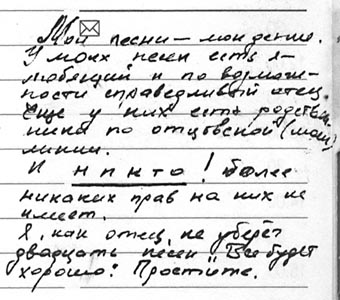 Мои песни – мои дети.
У моих песен есть я –
любящий и по возмож-
ности справедливый отец.
Еще у них есть родствен
ники по отцовской (моей)
линии.
И никто! более
никаких прав на них не
имеет.
Я, как отец, не уберёг
двадцать песен. Все будет
хорошо! Простите.